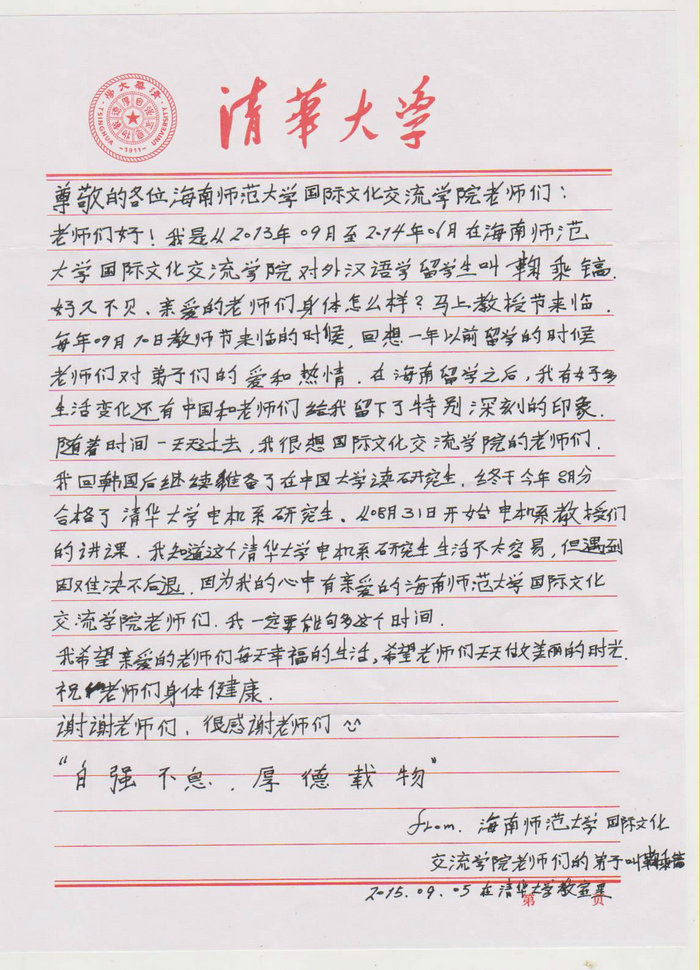 清華大學
TSINGHUA UNIVERSITY
-1911-
清華大学
尊敬的各位海南师范大学国际文化交流学院老师们:
老师们好!我是从2013年09月至2014年06月在海南师范
大学国际文化交流学院对外汉语学留学生叫鞠乘镐.
好久不见、亲爱的老师们身体怎么样?马上教授节来临.
每年09月10日教师节来临的时候,回想一年以前留学的时候
老师们对弟子们的爱和热情.在海南留学之后,我有好多
生活变化还有中国和老师们给我留下了特别深刻的印象.
随着时间一天天过去,我很想国际文化交流学院的老师们.
我回韩国后继续准备了在中国大学读研究生,终于今年8月分
合格了清华大学电机系研究生、从08月31日开始电机系教授们
的讲课.我知道这个清华大学电机系研究生生活不太容易,但遇到
困难决不后退.因为我的心中有亲爱的海南师范大学国际文化
交流学院老师们.我一定要能句多这个时间.
我希望亲爱的老师们每天幸福的生活,希望老师们天天做美丽的时光.
祝老师们身体健康.
谢谢老师们,很感谢老师们 ^^
"自强不息.厚德载物"
from. 海南师范大学国际文化
交流学院老师们的弟子叫鞠乘镐
2015.09.05在清华大学教室里
第 页